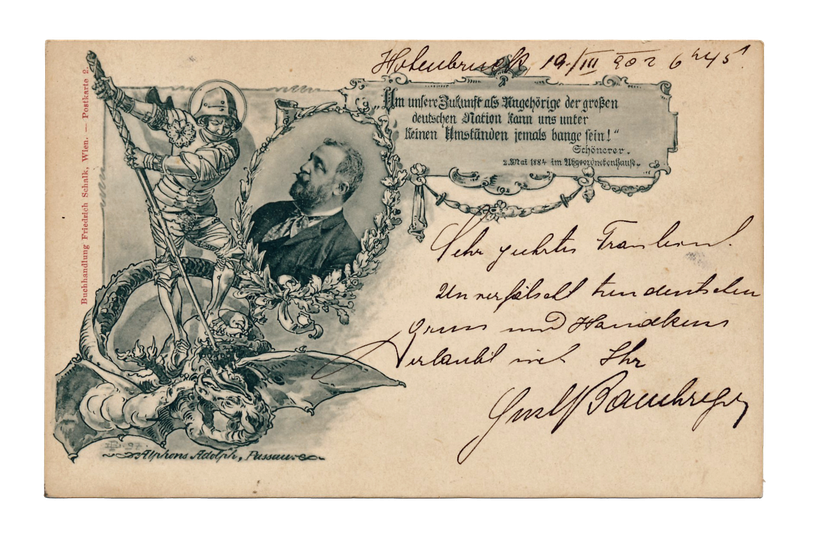 Hohenbruck 19./III 902 6h 45'
„Um unsere Zukunft als Angehörige der großen
deutschen Nation kann uns unter
keinen Umständen jemals bange sein!"
Schönerer.
2. Mai 1884 im Abgeordnetenhause.
Buchhandlung Friedrich Schalk, Wien. — Postkarte 2.
Sehr geehrtes Fräulein!
Unverfälscht treudeutschen
Gruss und Handkuss
erlaubt sich Ihr
Alphons Adolph, Passau